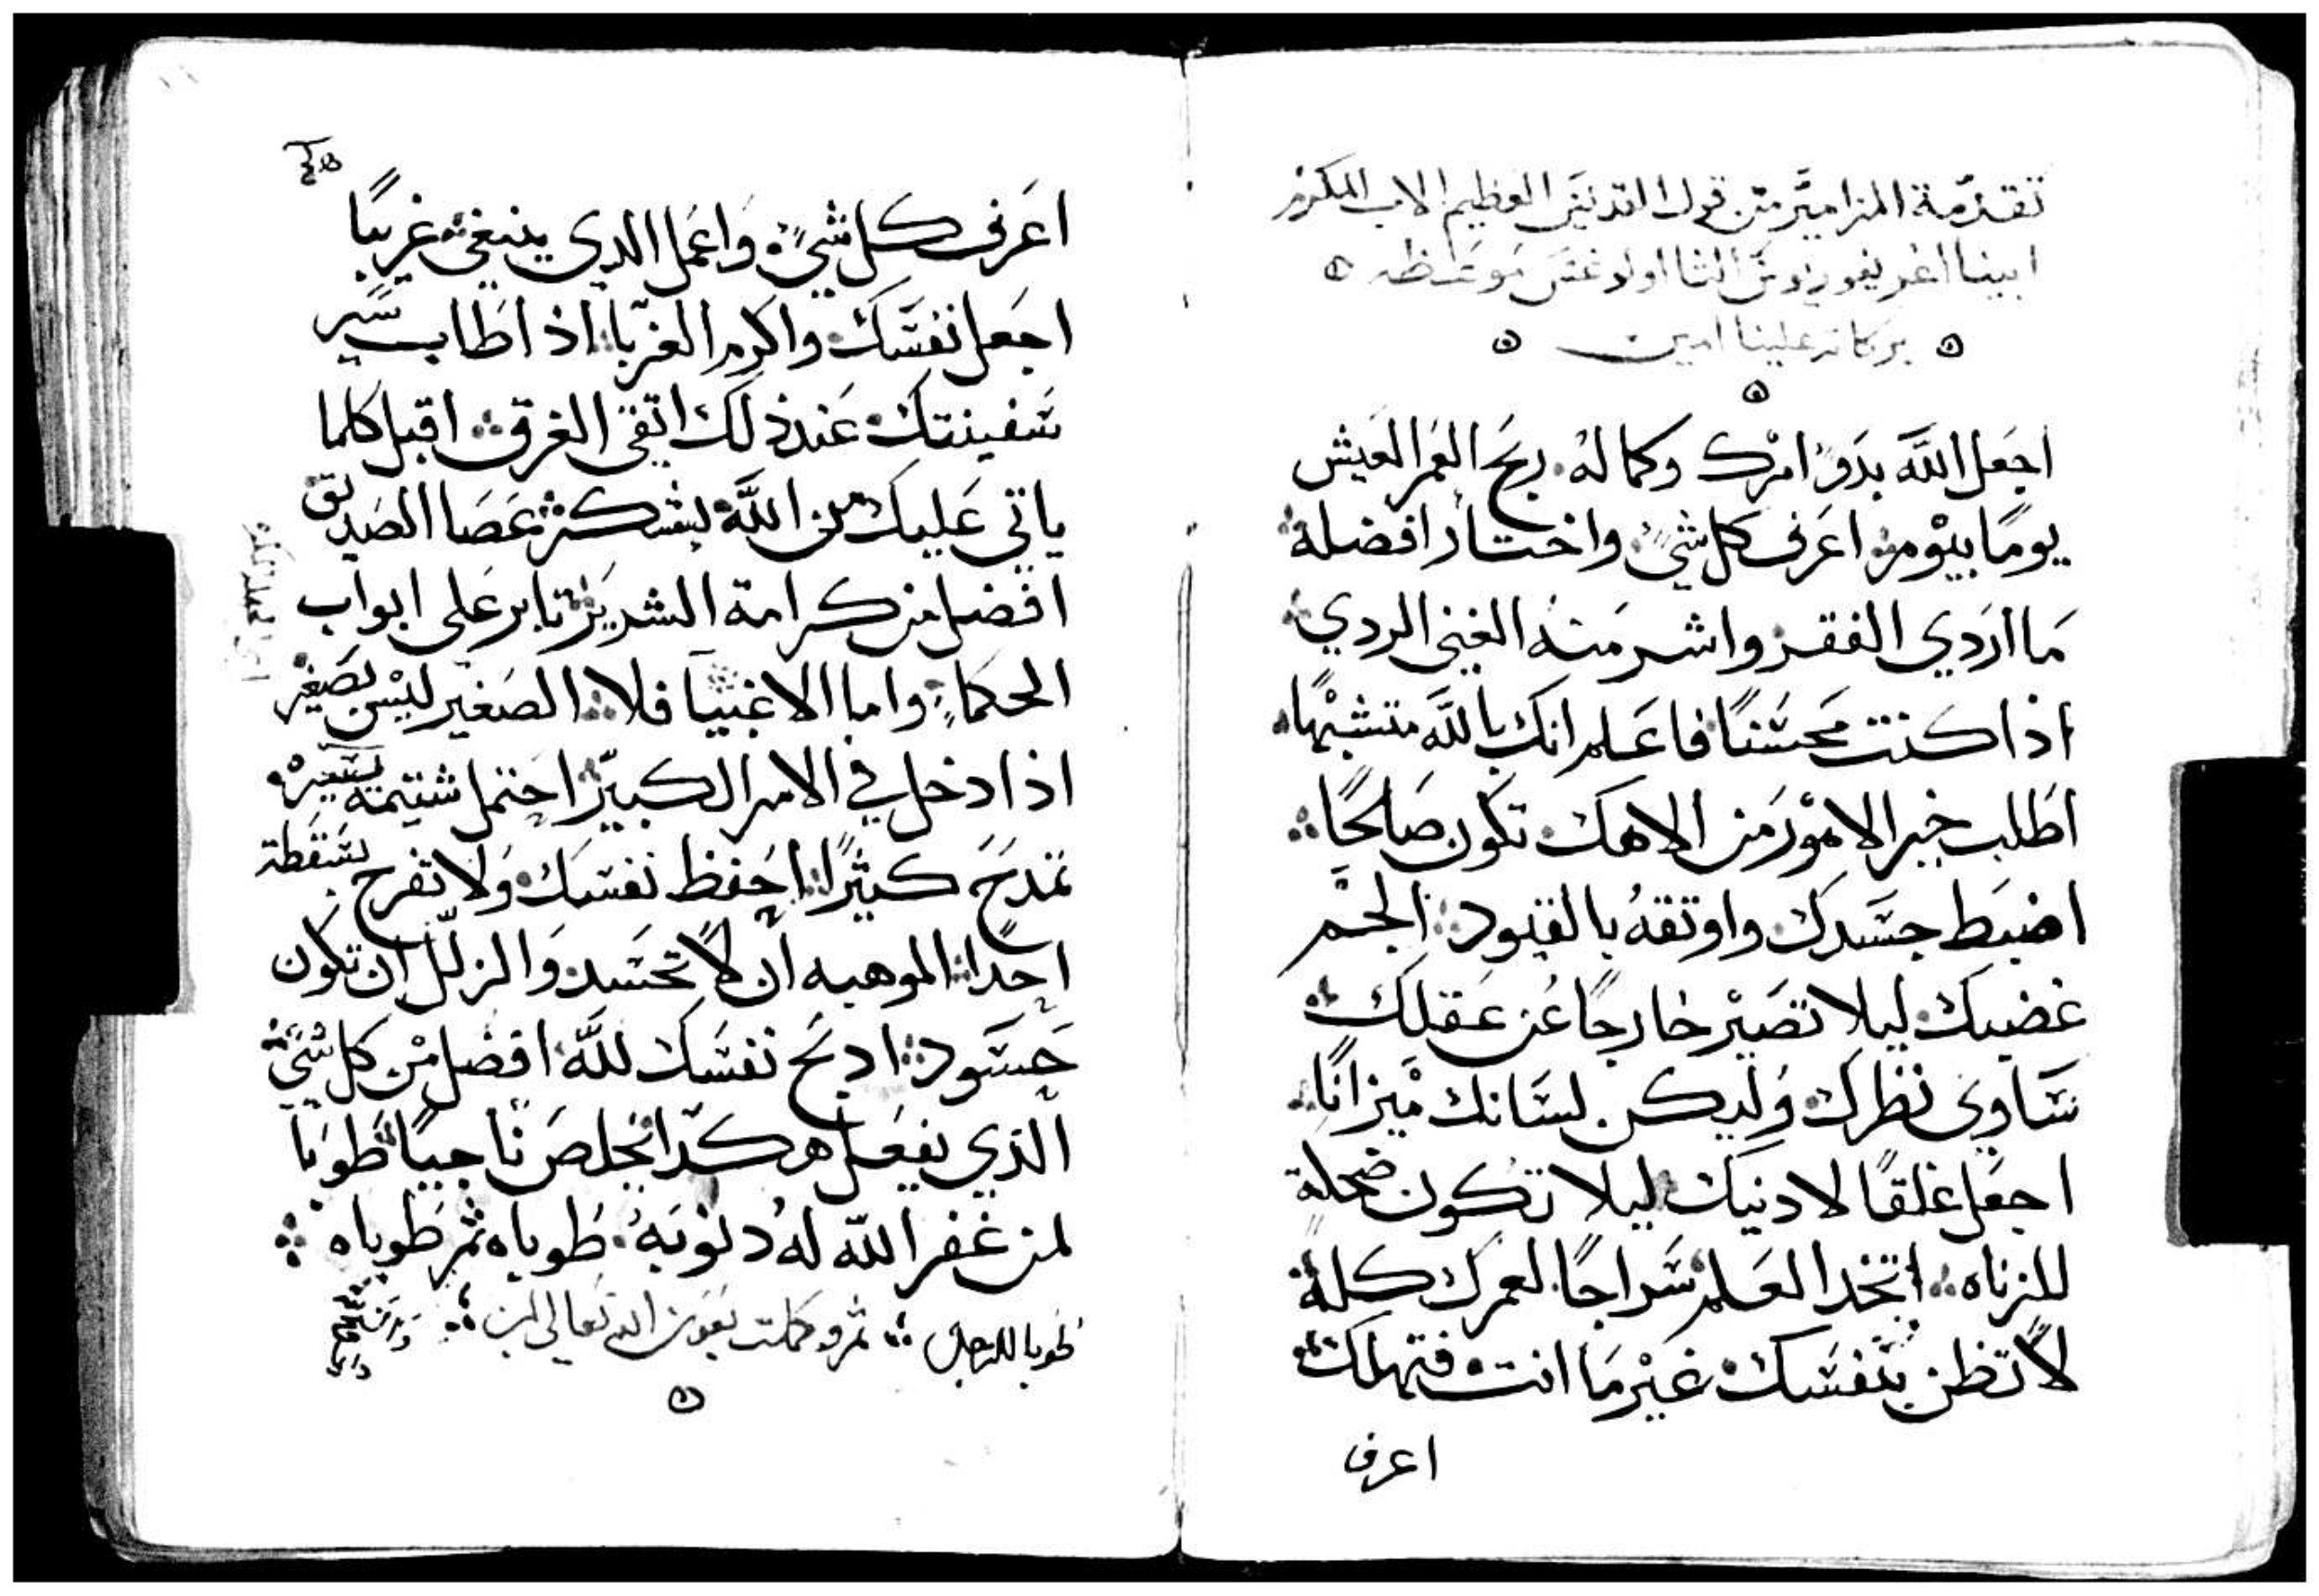 تقدمة المزامير من قول القديس العظيم الاب المكرم
ابينا اغريغوريوس الثااولوغس موعظه
بركاته علينا امين
اجعل الله بدو امرك وكماله. ربح العمر العيش
يومًا بيوم اعرف كل شيء واختار افضله
ما اردي الفقر واشر منه الغني الردي
اذا كنت محسنًا فاعلم انك بالله متشبهًا
اطلب خير الامور من الاهك تكون صالحًا
اضبط جسدك واوثقه بالقيود الجم
غضبك ليلا تصير خارجًا عن عقلك
ساوي نظرك وليكن لسانك ميزانًا
اجعل غلقًا لادنيك ليلا تكون ضحكة
للزناه اتخد العلم سراجًا لعمرك كله
لا تظن بنفسك غير ما انت فتهلك
اعرف
اعرف كل شيء واعمل الدي ينبغي غريبًا
اجعل نفسك واكرم الغربا اذ اطاب سير
سفينتك عند ذلك اتقي الغرق اقبل كلما
ياتي عليك من الله بشكر عصا الصديق
افضل من كرامة الشرير تابر علي ابواب
الحكماء واما الاغنيا فلا الصغير ليس بصغير
اذا دخل في الامر الكبير احتمل شتيمة يسيره
تمدح كثيرًا احفظ نفسك ولا تفرح بسقطة
احدًا الموهبه ان لا تحسد والزلل ان تكون
حسود ادبح نفسك لله افضل من كل شيء
الذي يفعل هكدا يخلص ناجيًا طوبا
لمن غفر الله له دنوبه طوباه ثم طوباه
طوبا للرجل ثم وكملت بعون الله تعالي امين